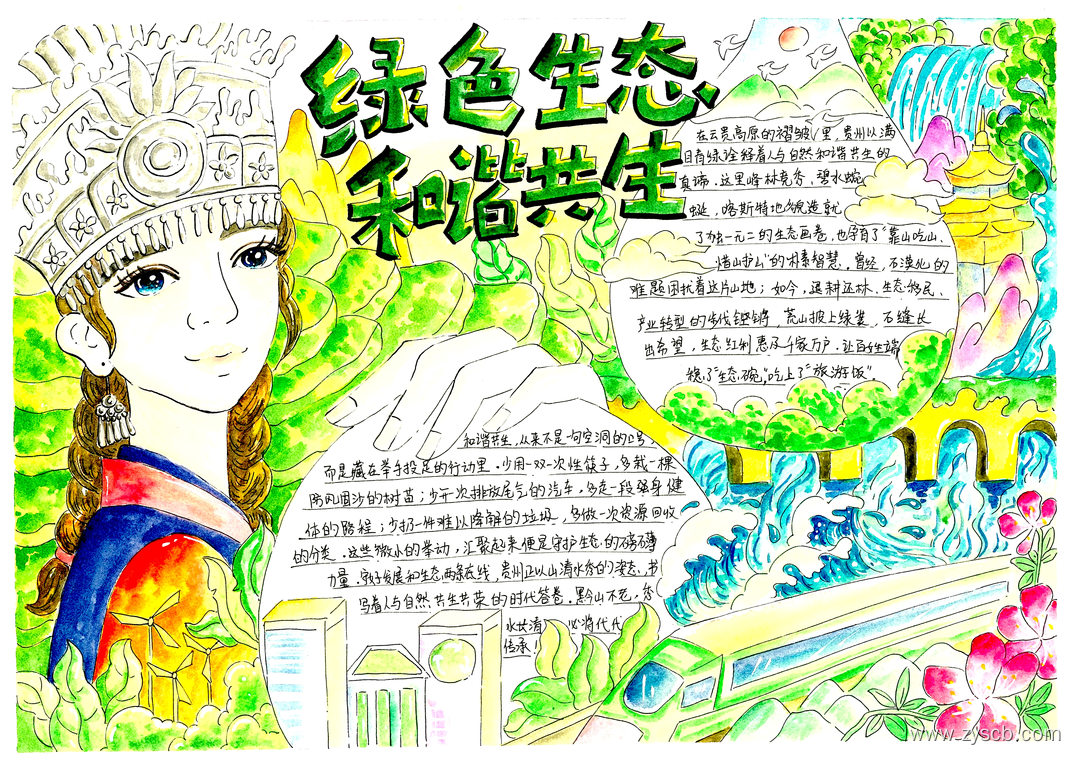 绿色生态
和谐共生
在云贵高原的褶皱里，贵州以满
目青绿诠释着人与自然和谐共生的
真谛。这里峰林竞秀、碧水蜿
蜒，喀斯特地貌造就
了独一无二的生态画卷，也孕育了“靠山吃山、
惜山护山”的朴素智慧。曾经，石漠化的
难题困扰着这片山地；如今，退耕还林、生态移民、
产业转型的时代铿锵，荒山披上绿装，石缝长
出希望，生态红利惠及千家万户，让百姓端
稳了“生态碗，”吃上了“旅游饭”
和谐共生，从来不是一句空洞的口号，
而是藏在举手投足的行动里。少用一双一次性筷子，多栽一棵
防风固沙的树苗；少开一次排放尾气的汽车，多走一段强身健
体的路程；少扔一件难以降解的垃圾，多做一次资源回收
的分类。这些微小的举动，汇聚起来便是守护生态的磅礴
力量。守好发展和生态两条底线，贵州正以山清水秀的姿态，书
写着人与自然共生共荣的时代答卷。黔山不老，秀
水长清，必将代代
传承！
www.zyscb.com